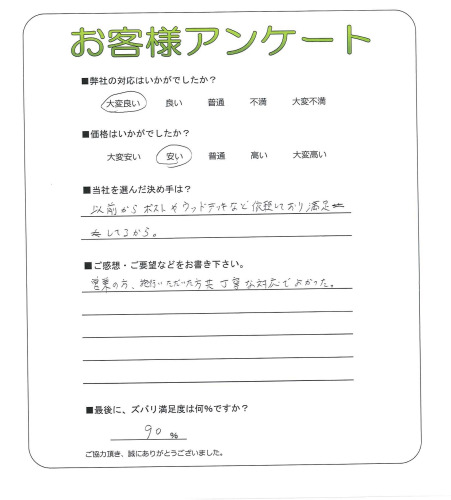 お客様アンケート
■弊社の対応はいかがでしたか？
大変良い 良い 普通 不満 大変不満
■価格はいかがでしたか？
大変安い 安い 普通 高い 大変高い
■当社を選んだ決め手は？
以前からポストやウッドデッキなど依頼しており満足
してるから。
■ご感想・ご要望などをお書き下さい。
営業の方、施行いただいた方共丁寧な対応でよかった。
■最後に、ズバリ満足度は何%ですか？
90 %
ご協力頂き、誠にありがとうございました。